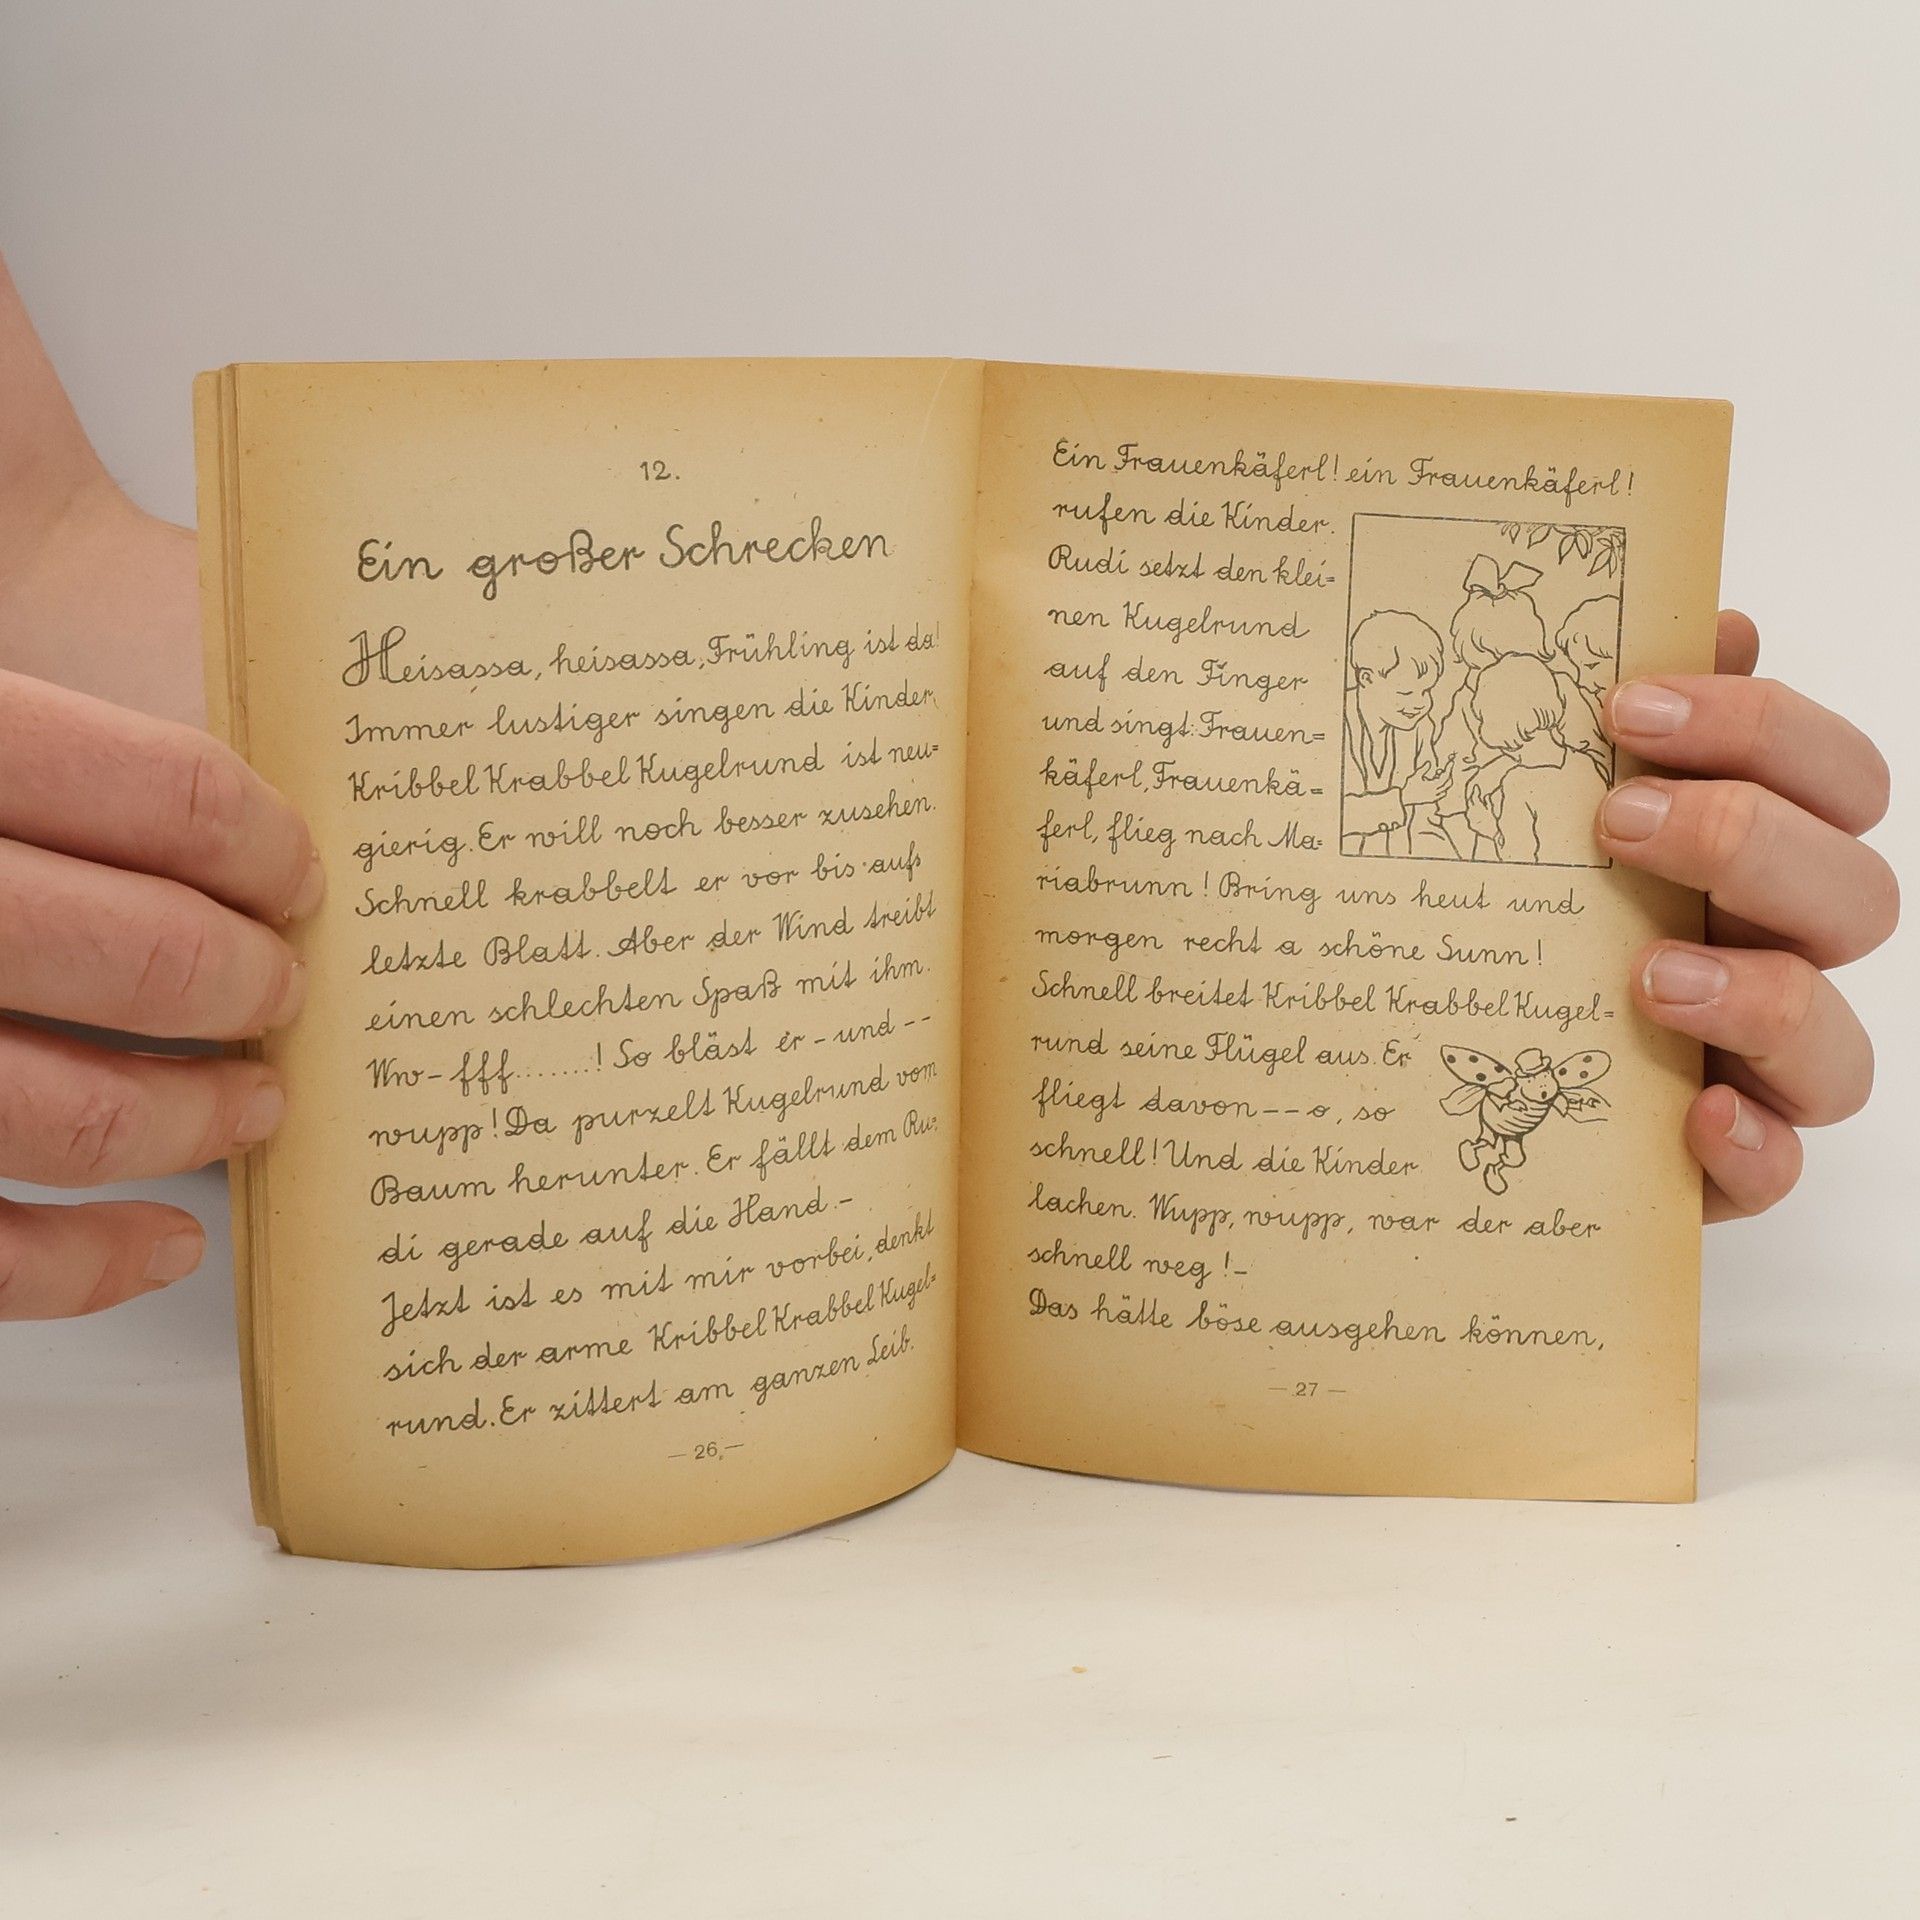 12.
Ein großer Schrecken
Heisassa, heisassa, Frühling ist da!
Immer lustiger singen die Kinder.
Kribbel Krabbel Kugelrund ist neu=
gierig. Er will noch besser zusehen.
Schnell krabbelt er vor bis aufs
letzte Blatt. Aber der Wind treibt
einen schlechten Spaß mit ihm.
Ww-fff.......! So bläst er - und --
wupp! Da purzelt Kugelrund vom
Baum herunter. Er fällt dem Ru=
di gerade auf die Hand.-
Jetzt ist es mit mir vorbei, denkt
sich der arme Kribbel Krabbel Kugel=
rund. Er zittert am ganzen Leib.
— 26 —
Ein Frauenkäferl! ein Frauenkäferl!
rufen die Kinder.
Rudi setzt den klei=
nen Kugelrund
auf den Finger
und singt: Frauen=
käferl, Frauenkä=
ferl, flieg nach Ma=
riabrunn! Bring uns heut und
morgen recht a schöne Sunn!
Schnell breitet Kribbel Krabbel Kugel=
rund seine Flügel aus. Er
fliegt davon -- o, so
schnell! Und die Kinder
lachen. Wupp, wupp, war der aber
schnell weg!-
Das hätte böse ausgehen können,
— 27 —